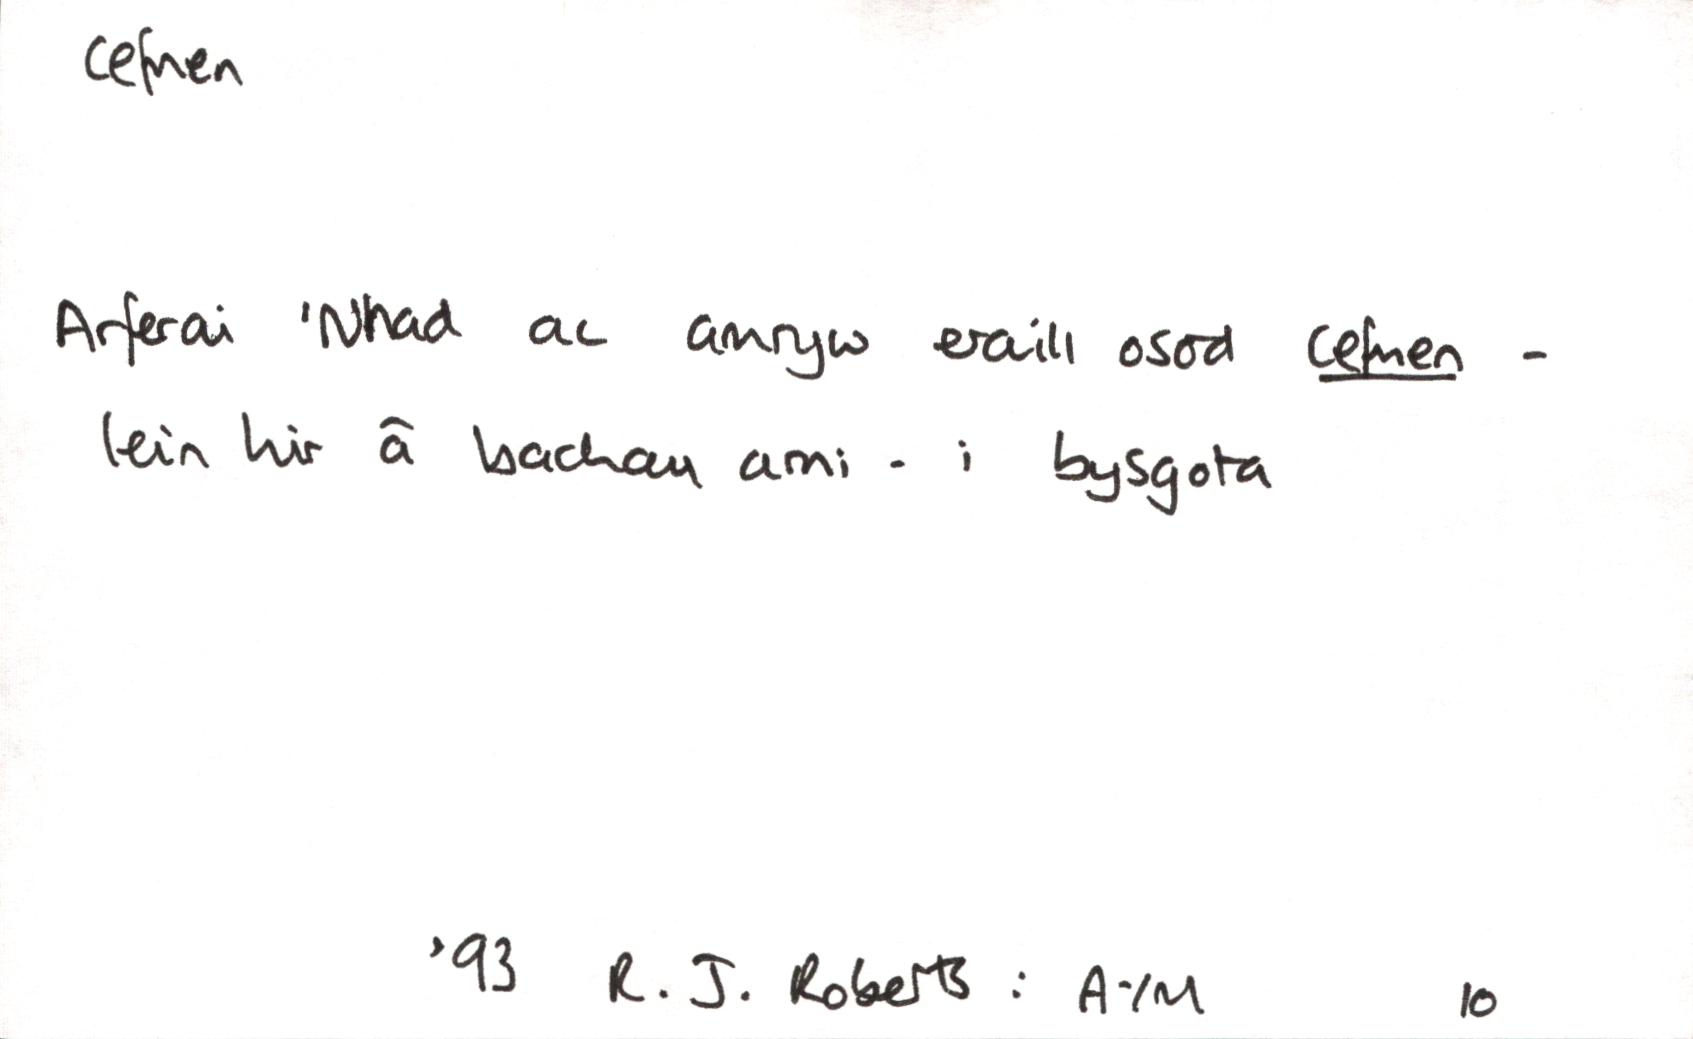 cefnen
Arferai 'Nhad ac amryw eraill osod cefnen -
lein hir â bachau arni - i bysgota
'93 R. J. Roberts : A-/M 10